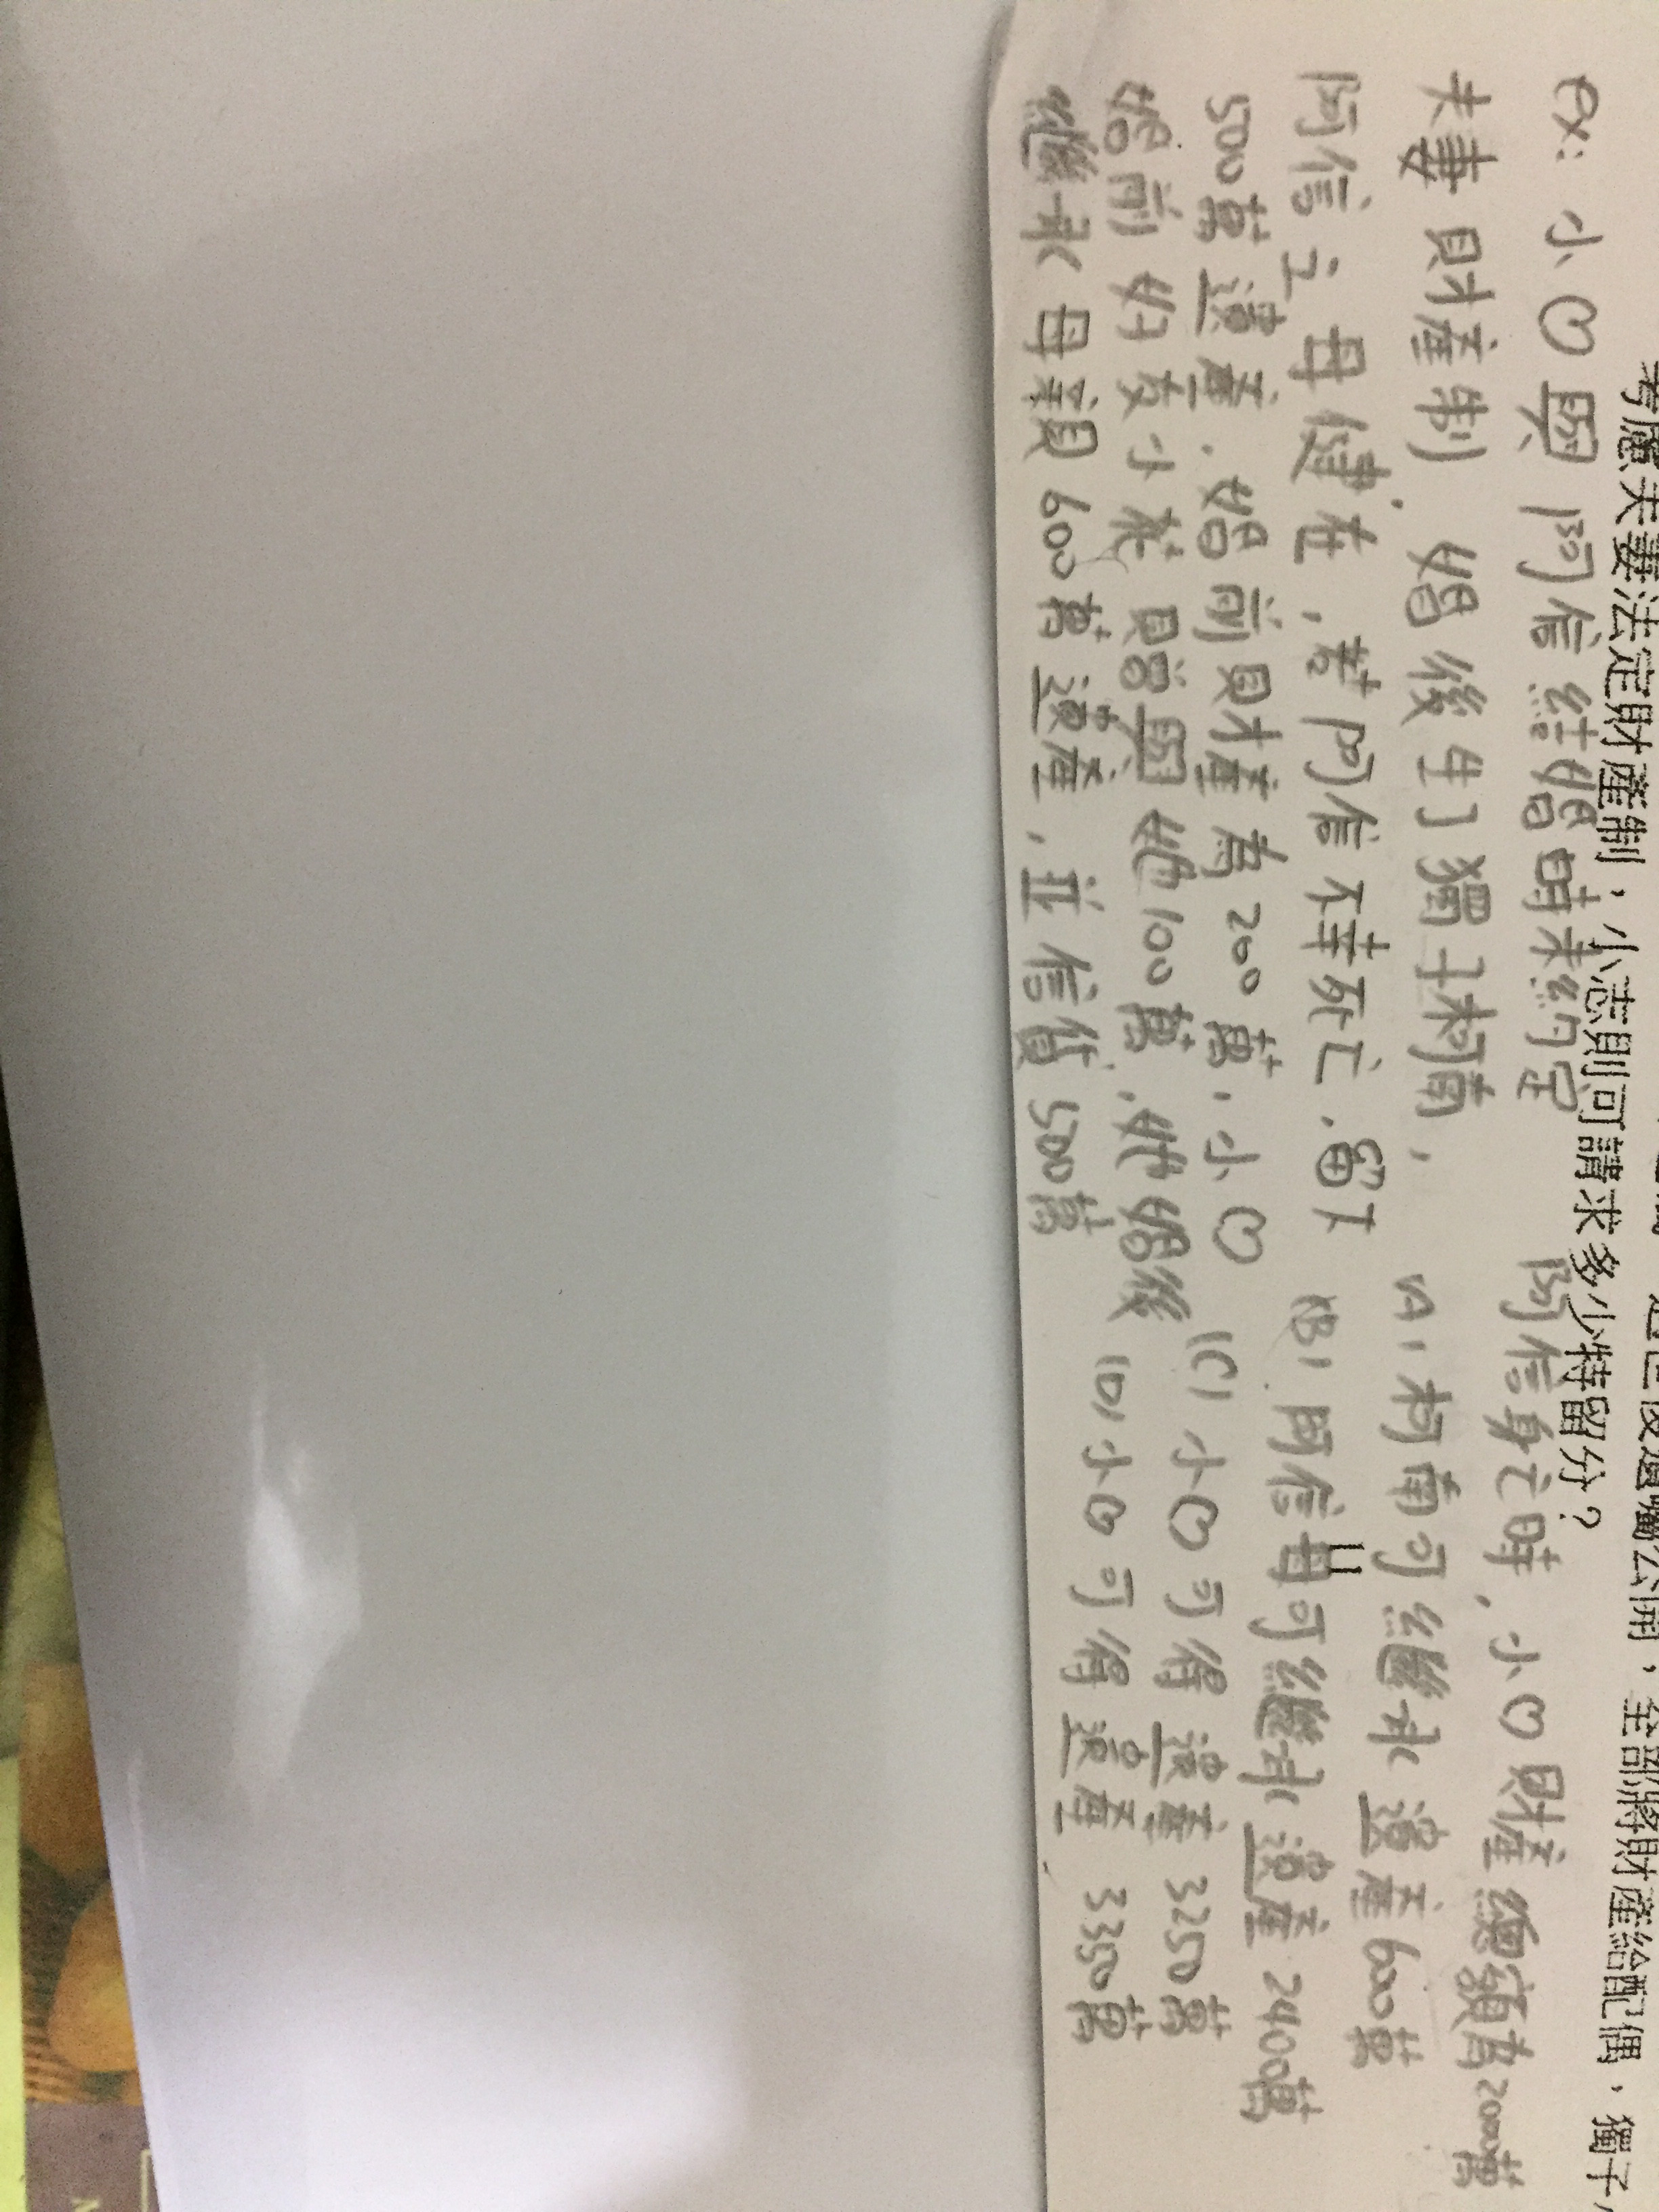 全部將財產給配偶，獨子小
考慮夫妻法定財產制，小志則可請求多少特留分？
ex: 小心與阿信結婚時未約定
夫妻財產制．婚後生了獨子柯南，
阿信之母健在，若阿信不幸死亡．留下
500萬遺產．婚前財產為200萬．小心
婚前好友小林曾贈與她100萬．她婚後
繼承母親600萬遺產，並借貸500萬
阿信身亡時，小心財產總額為2000萬
(A) 柯南可繼承遺產600萬
(B) 阿信母可繼承遺產2400萬
(C) 小心可得遺產3250萬
(D) 小心可得遺產3350萬
11